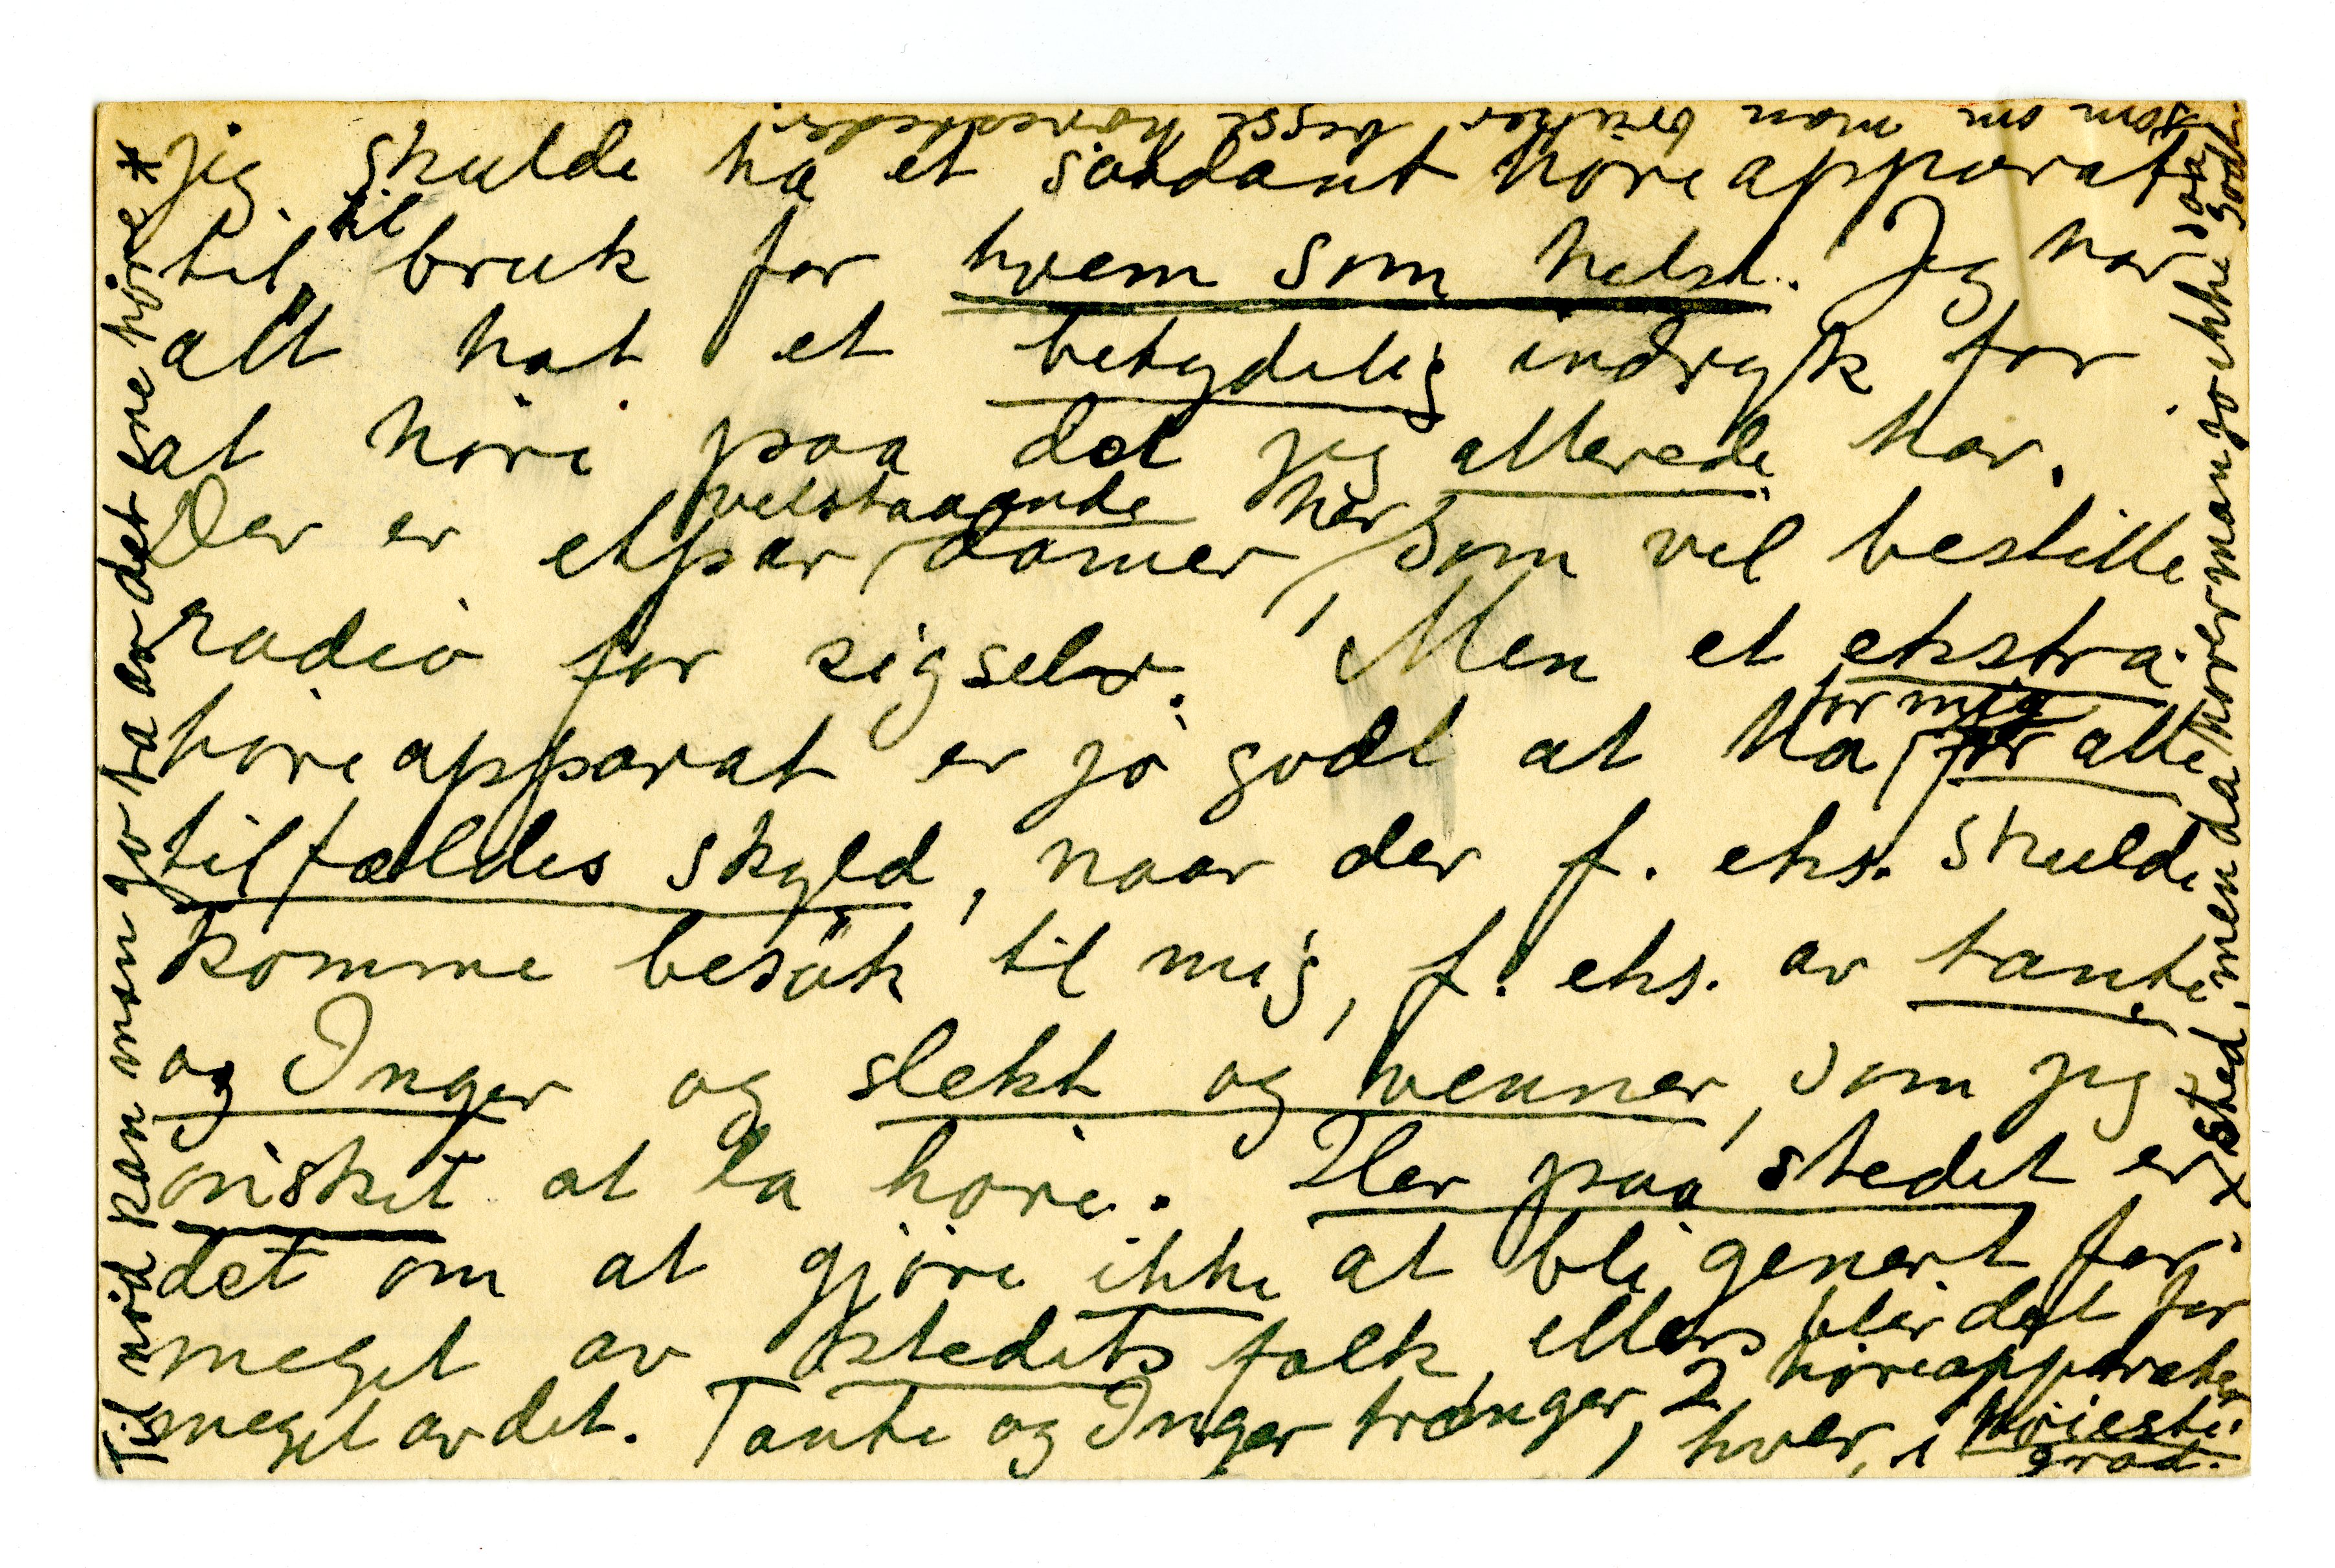 jeg skulde ha et saadant höreapparat
til, til bruk for hvem som helst. Jeg har
alt hat et betydelig indryk for
at höre paa det jeg allerede har.
Der er etpar velstaaende damer her som vil bestille
radio for sigselv. Men et ekstra
höreapparat er jo godt at ha for mig for alle
tilfældes skyld, naar der f. eks. skulde
komme besök til mig, f. eks. av tante
og Inger og slekt og venner, som jeg
önsket at la höre. Her paa stedet er
det om at gjöre ikke at bli genert for
meget av stedets folk, ellers blir det for
meget av det. Tante og Inger trænger 2 höreapparater, hver, i höieste
grad.
Til nöd kan man jo ta av det ene höre *
* sted, men da hörer man jo ikke saa godt
som om man bruker begge höresteder.